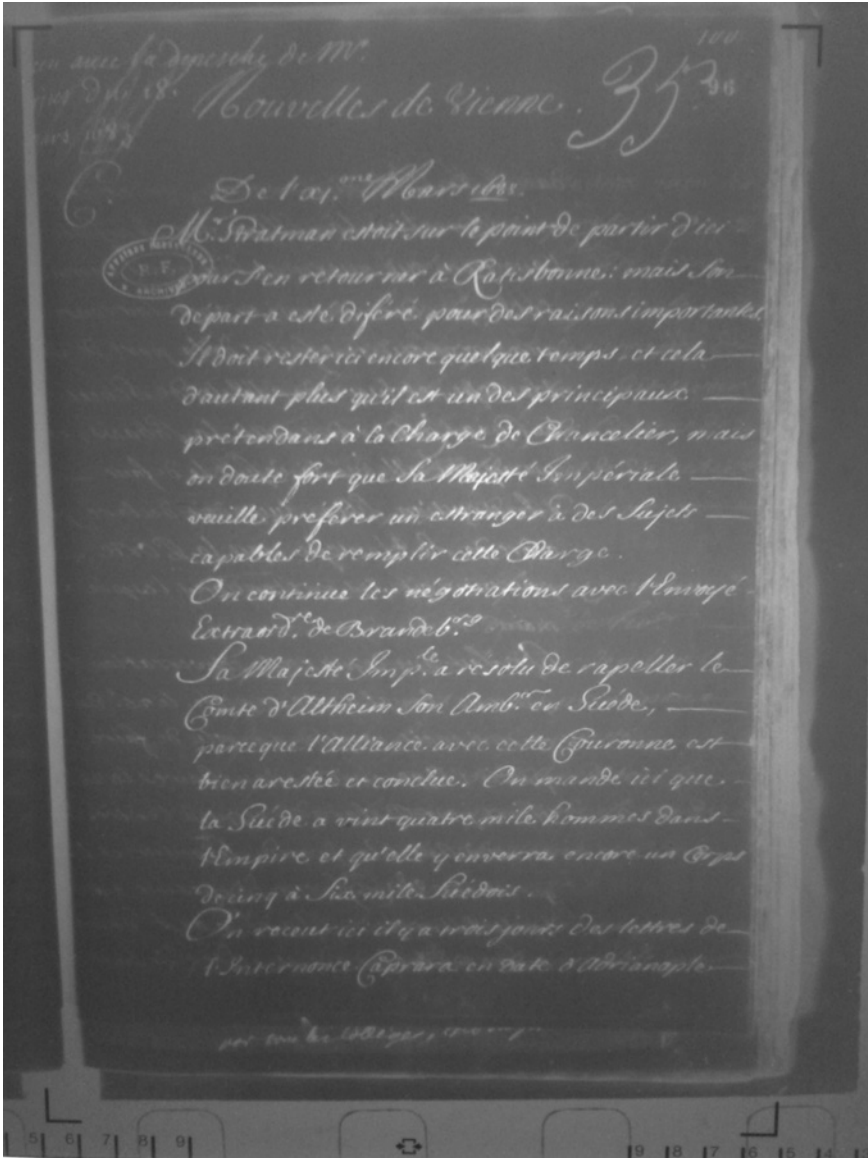 100
avec la depesche de Mr.
du 18.
35
96
Nouvelles de Vienne.
De l'xj.me Mars 1683.
Mr. Stratman estoit sur le point de partir d'ici
pour s'en retourner à Ratisbonne: mais son
départ a esté diféré pour des raisons importantes.
Il doit rester ici encore quelque temps, et cela
d'autant plus qu'il est un des principaux
prétendans à la Charge de Chancelier, mais
on doute fort que Sa Majesté Impériale
veuille préférer un estranger à des Sujets
capables de remplir cette Charge.
On continue les négotiations avec l'Envoyé
Extraord.re de Brandeb.g
Sa Majesté Imp.le a résolu de rapeller le
Comte d'Altheim son Amb.eur en Suéde,
parceque l'Alliance avec cette Couronne est
bien arestée et conclue. On mande ici que
la Suéde a vint quatre mile hommes dans
l'Empire et qu'elle y enverra encore un Corps
de cinq à Six mile Suédois.
On receut ici il y a trois jours des lettres de
l'Internonce Caprara en date d'Adrianople
R.F.
5 6 7 8 9
9 8 7 6 5 4